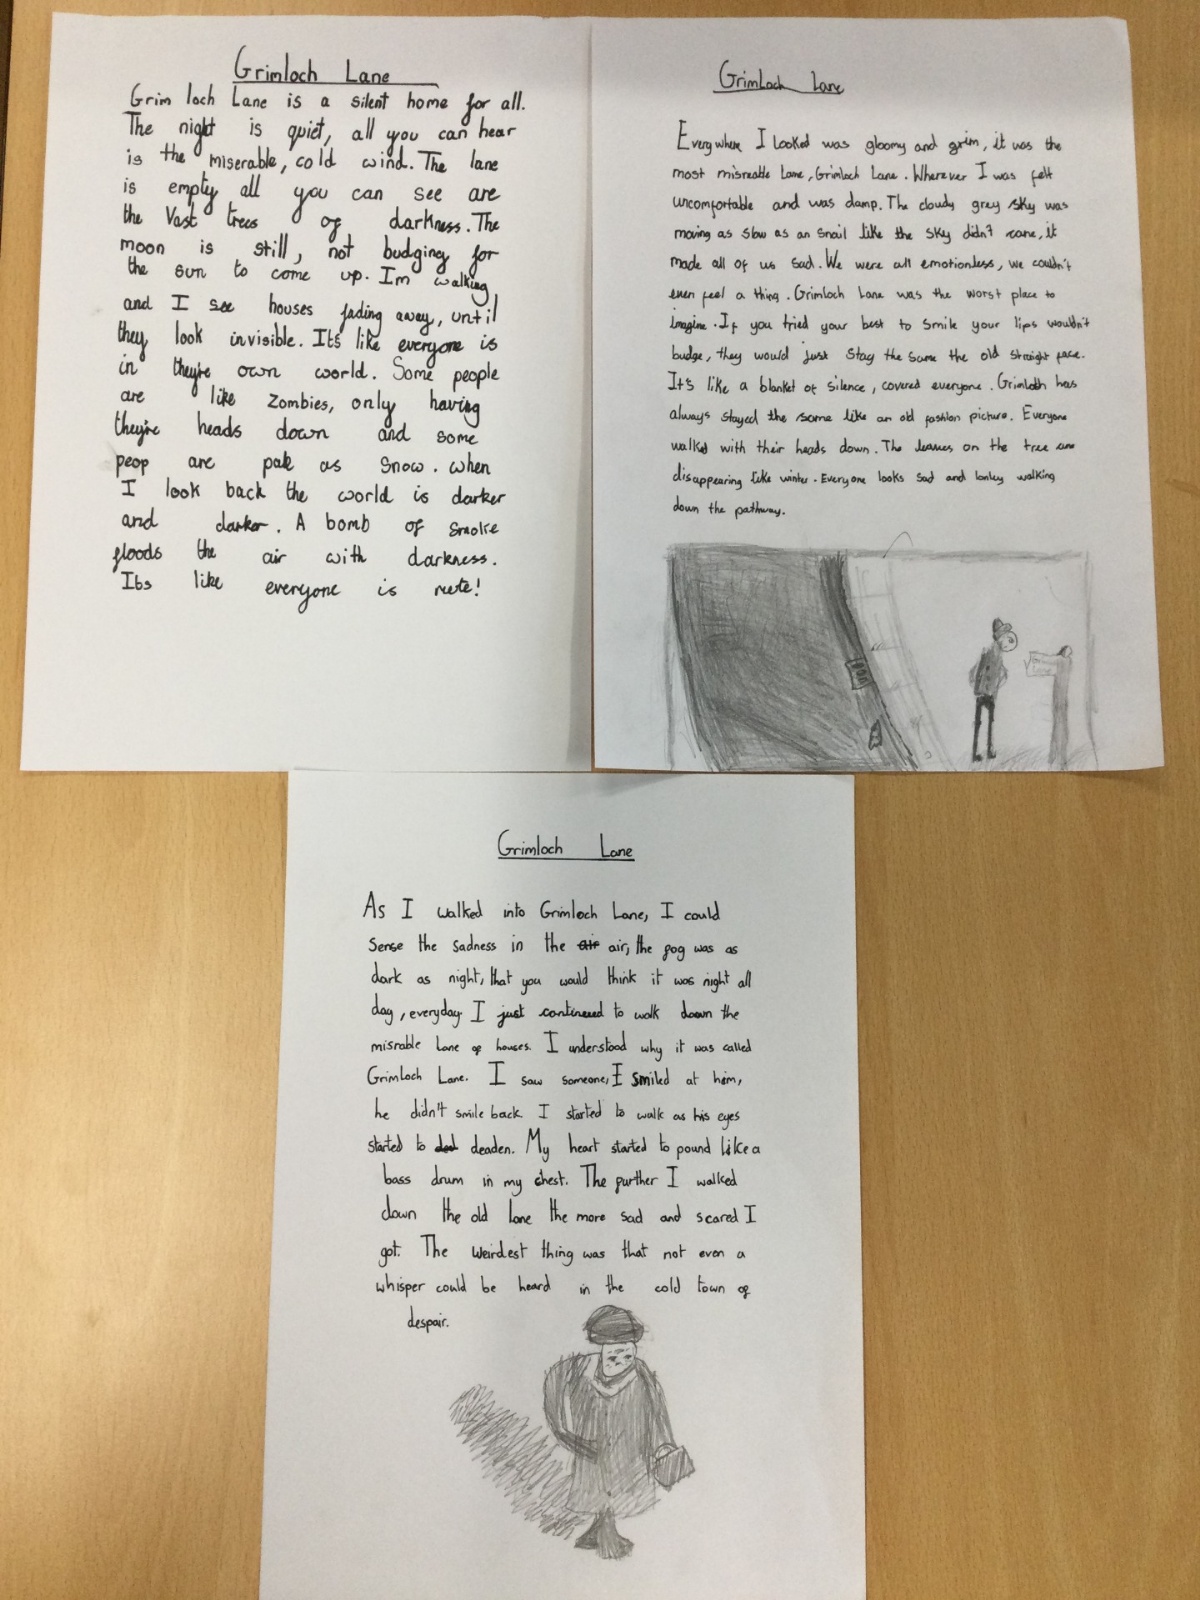 Grimloch Lane
Grim loch Lane is a silent home for all.
The night is quiet, all you can hear
is the miserable, cold wind. The lane
is empty all you can see are
the Vast trees of darkness. The
moon is still, not budging for
the sun to come up. Im walking
and I see houses fading away, until
they look invisible. It's like everyone is
in they're own world. Some people
are like Zombies, only having
they're heads down and some
peop are pale as snow. when
I look back the world is darker
and darker. A bomb of smoke
floods the air with darkness.
Its like everyone is mute!
Grimloch Lane
Everywhere I looked was gloomy and grim, it was the
most misreable Lane, Grimloch Lane. Wherever I was felt
uncomfortable and was damp. The cloudy grey sky was
moving as slow as an snail like the sky didn't care, it
made all of us sad. We were all emotionless, we couldn't
even feel a thing. Grimloch Lane was the worst place to
imagine. If you tried your best to smile your lips wouldn't
budge, they would just stay the same the old straight face.
It's like a blanket of silence, covered everyone. Grimloth has
always stayed the same like an old fashion picture. Everyone
walked with their heads down. The leaves on the tree are
disappearing like winter. Everyone looks sad and lonley walking
down the pathway.
Grimloch Lane
As I walked into Grimloch Lane, I could
sense the sadness in the air air, the fog was as
dark as night, that you would think it was night all
day, everyday. I just continued to walk down the
misrable Lane of houses. I understood why it was called
Grimloch Lane. I saw someone, I smiled at him,
he didn't smile back. I started to walk as his eyes
started to deaden. My heart started to pound like a
bass drum in my chest. The further I walked
down the old lane the more sad and scared I
got. The weirdest thing was that not even a
whisper could be heard in the cold town of
despair.